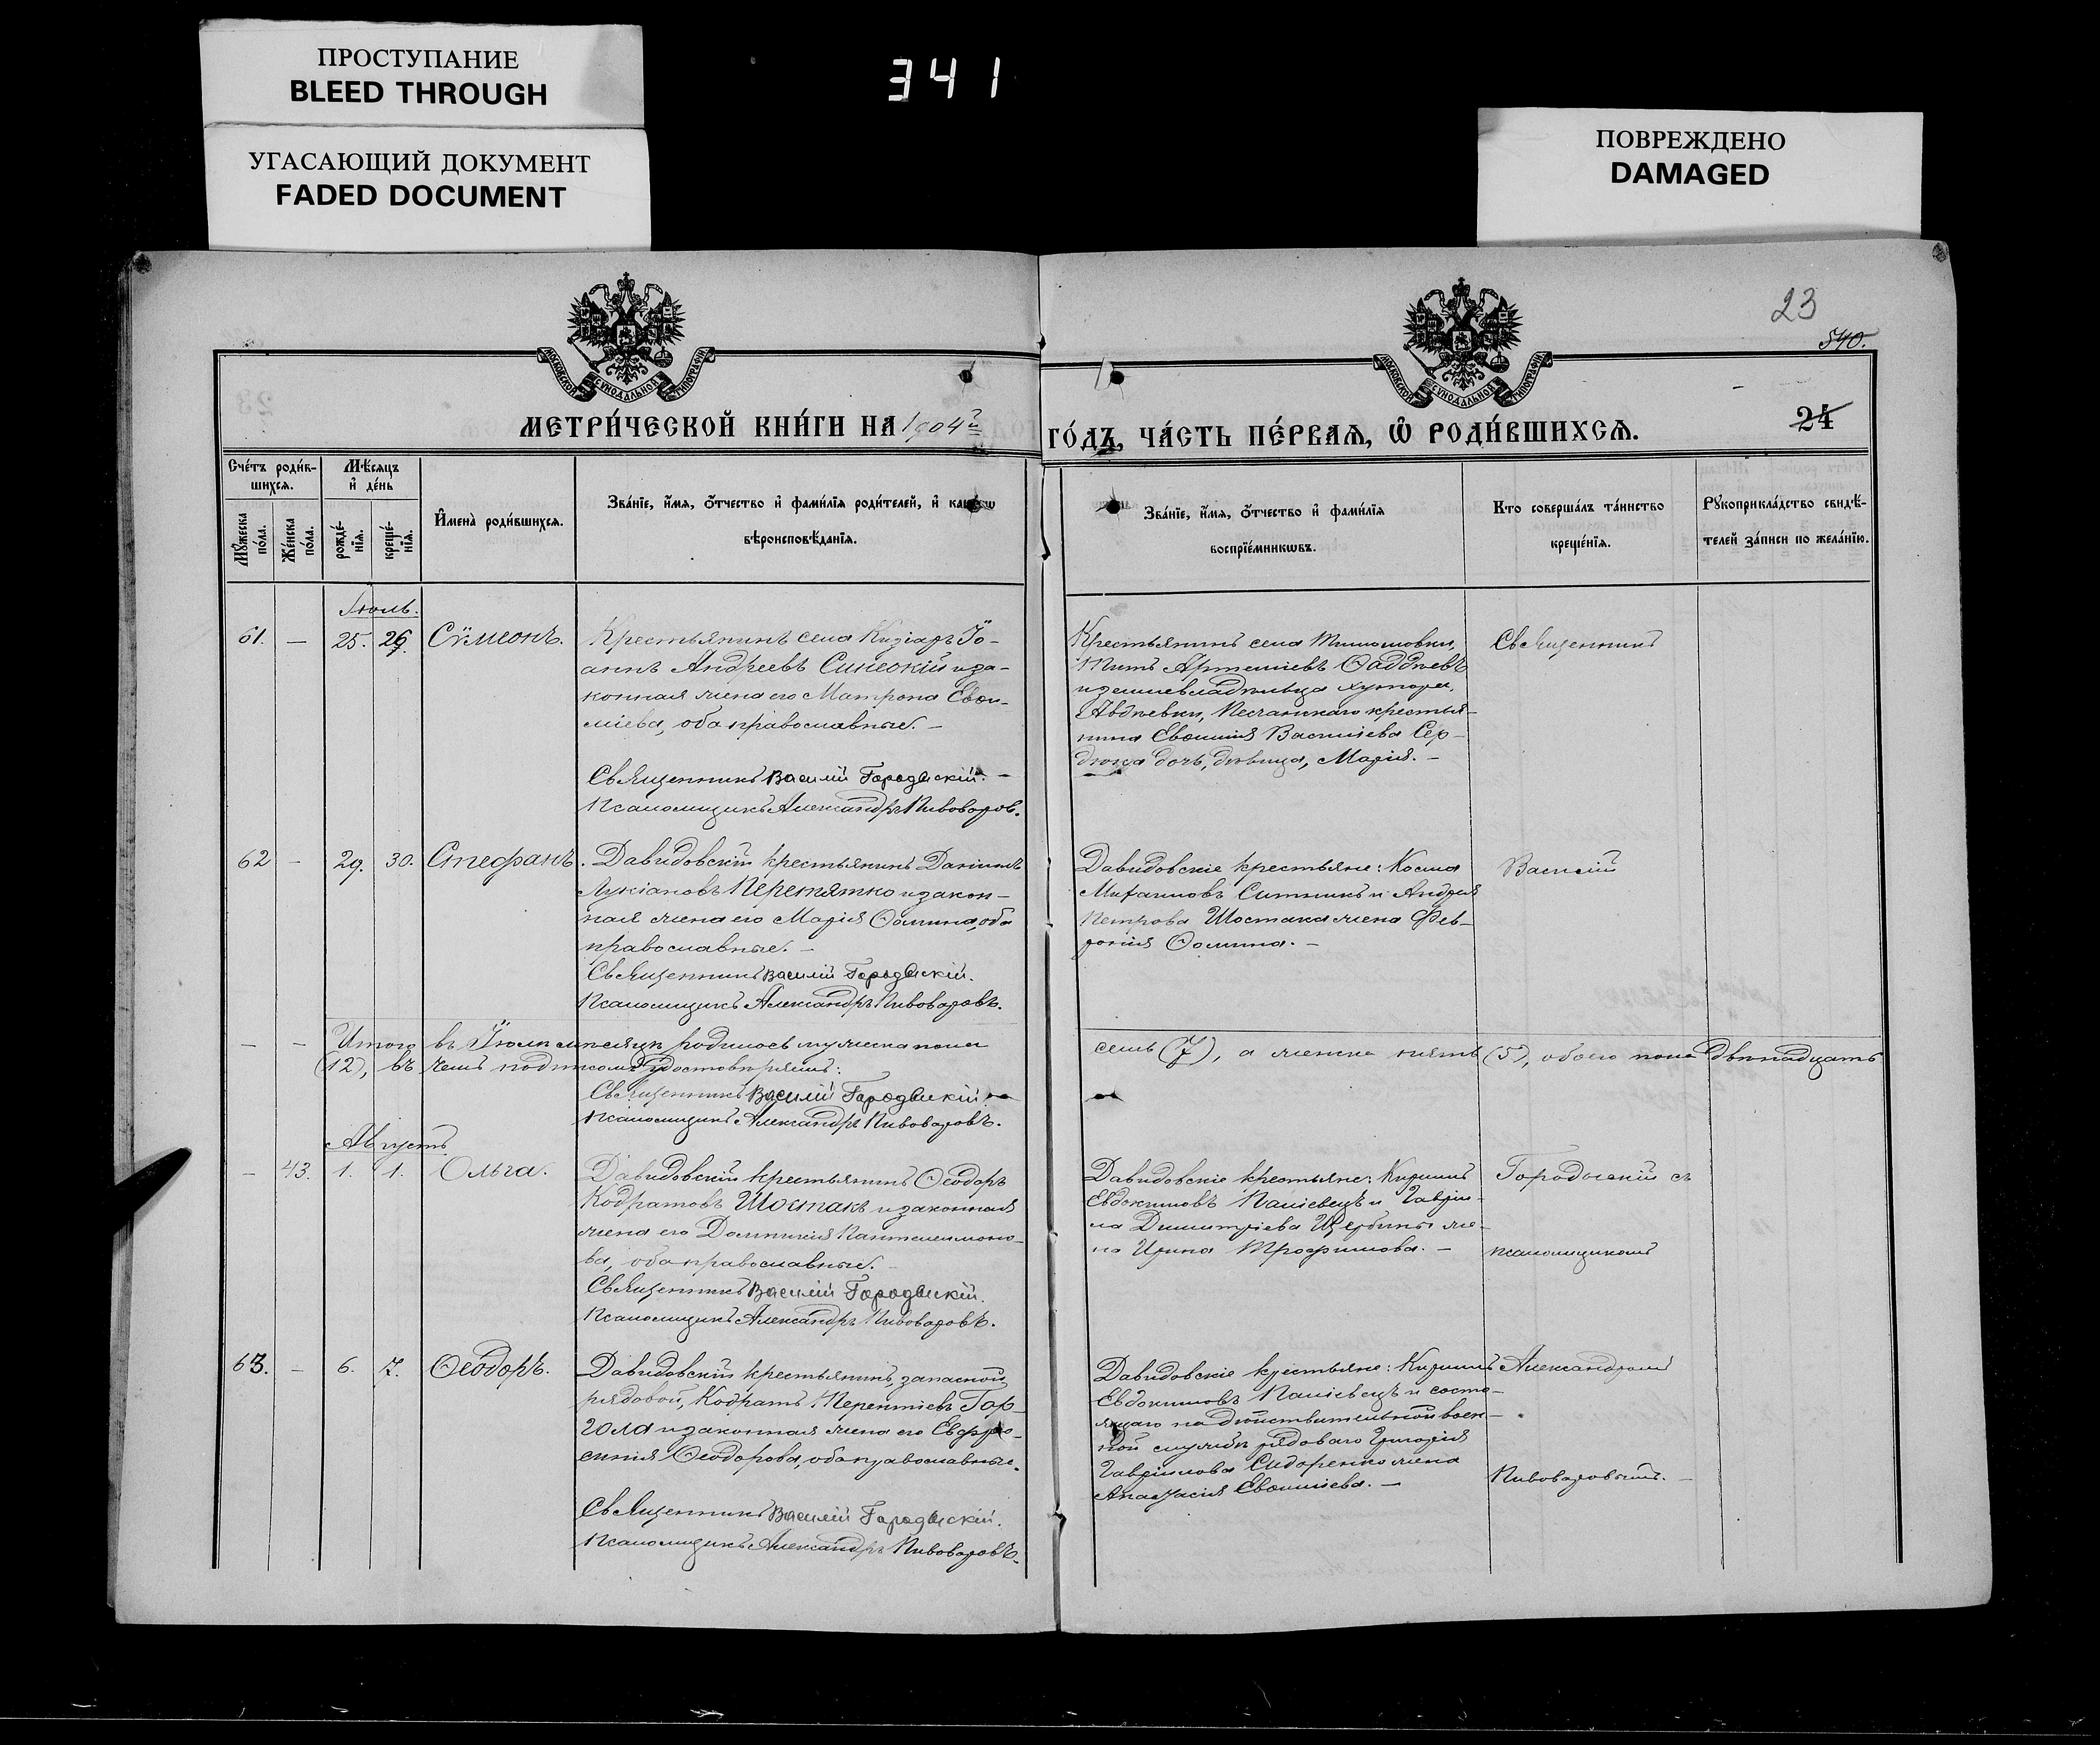 ПРОСТУПАНИЕ
BLEED THROUGH
УГАСАЮЩИЙ ДОКУМЕНТ
FADED DOCUMENT
341
ПОВРЕЖДЕНО
DAMAGED
23
540.
24
МОСКОВСКОЙ СУНОДАЛЬНОЙ ТИПОГРАФІИ
МОСКОВСКОЙ СУНОДАЛЬНОЙ ТИПОГРАФІИ
МЕТРИ́ЧЕСКОЙ КНИ́ГИ НА 1904й
ГО́ДЪ, ЧА́СТЬ ПЕ́РВАѦ, Ѡ РОДИ́ВШИХСѦ.
Сче́тъ роди́в-
шихся.
Мѣ́сяцъ
и де́нь
Му́жеска по́ла.
Же́нска по́ла.
рожде́-
нїя.
креще́-
нїя.
Имена̀ роди́вшихся.
Зва́нїе, и́мя, о́тчество и фами́лїя роди́телей, и како́гѡ
вѣроисповѣ́данїя.
Зва́нїе, и́мя, о́тчество и фами́лїя
воспрїе́мникѡвъ.
Кто соверша́лъ та́инство
креще́нїя.
Рукоприкла́дство свидѣ́-
телей за́писи по жела́нїю.
Іюль.
61. — 25. 26. Сѵмеонъ.
Крестьянинъ села Кизіаръ Іо-
аннъ Андреевъ Синеокій и за-
конная жена его Матрона Евѳи-
міева, оба православные. —
Священникъ Василій Городыскій. —
Псаломщикъ Александръ Пивоваров.
Крестьянинъ села Тимошовки,
Титъ Артеміевъ Ѳаддѣевъ
и землевладѣльца хутора,
Авдѣевки, Песчанскаго крестья-
нина Евѳимія Васильева Сер-
дюка дочь, дѣвица, Марія. —
Священникъ
62 — 29. 30. Стефанъ.
Давидовскій крестьянинъ Даніилъ
Лукіановъ Перетятко и закон-
ная жена его Марія Ѳомина, оба
православные. —
Священникъ Василій Городыскій.
Псаломщикъ Александръ Пивоваровъ.
Давидовскіе крестьяне: Косма
Михаиловъ Ситникъ и Андрея
Петрова Шостака жена Фев-
ронія Ѳомина. —
Василій
— — Итого въ Іюлѣ мѣсяцѣ родилось мужеска пола
семь (7), а женска пять (5), обоего пола двѣнадцать
(12), въ чемъ подписомъ удостовѣряемъ:
Священникъ Василій Городыскій.
Псаломщикъ Александръ Пивоваровъ.
Августъ.
— 43. 1. 1. Ольга.
Давидовскій крестьянинъ Ѳеодоръ
Кодратовъ Шостакъ и законная
жена его Домникія Пантелеимоно-
ва, оба православные.
Священникъ Василій Городыскій.
Псаломщикъ Александръ Пивоваровъ.
Давидовскіе крестьяне: Кириллъ
Евдокимовъ Палієвецъ и Гаврії-
ла Димитріева Щербины же-
на Ирина Трофимова. —
Городыскій съ
псаломщикомъ
63. — 6. 7. Ѳеодоръ.
Давидовскій крестьянинъ, запасной
рядовой, Кодратъ Терентіевъ Гор-
гола и законная жена его Евфро-
синія Ѳеодорова, оба православные.
Священникъ Василій Городыскій.
Псаломщикъ Александръ Пивоваровъ.
Давидовскіе крестьяне: Кириллъ
Евдокимовъ Паліевецъ и состо-
ящаго на дѣйствительной воен-
ной службѣ рядоваго Григорія
Гавріилова Сидоренко жена
Анастасія Евѳиміева. —
Александромъ
Пивоваровымъ. —